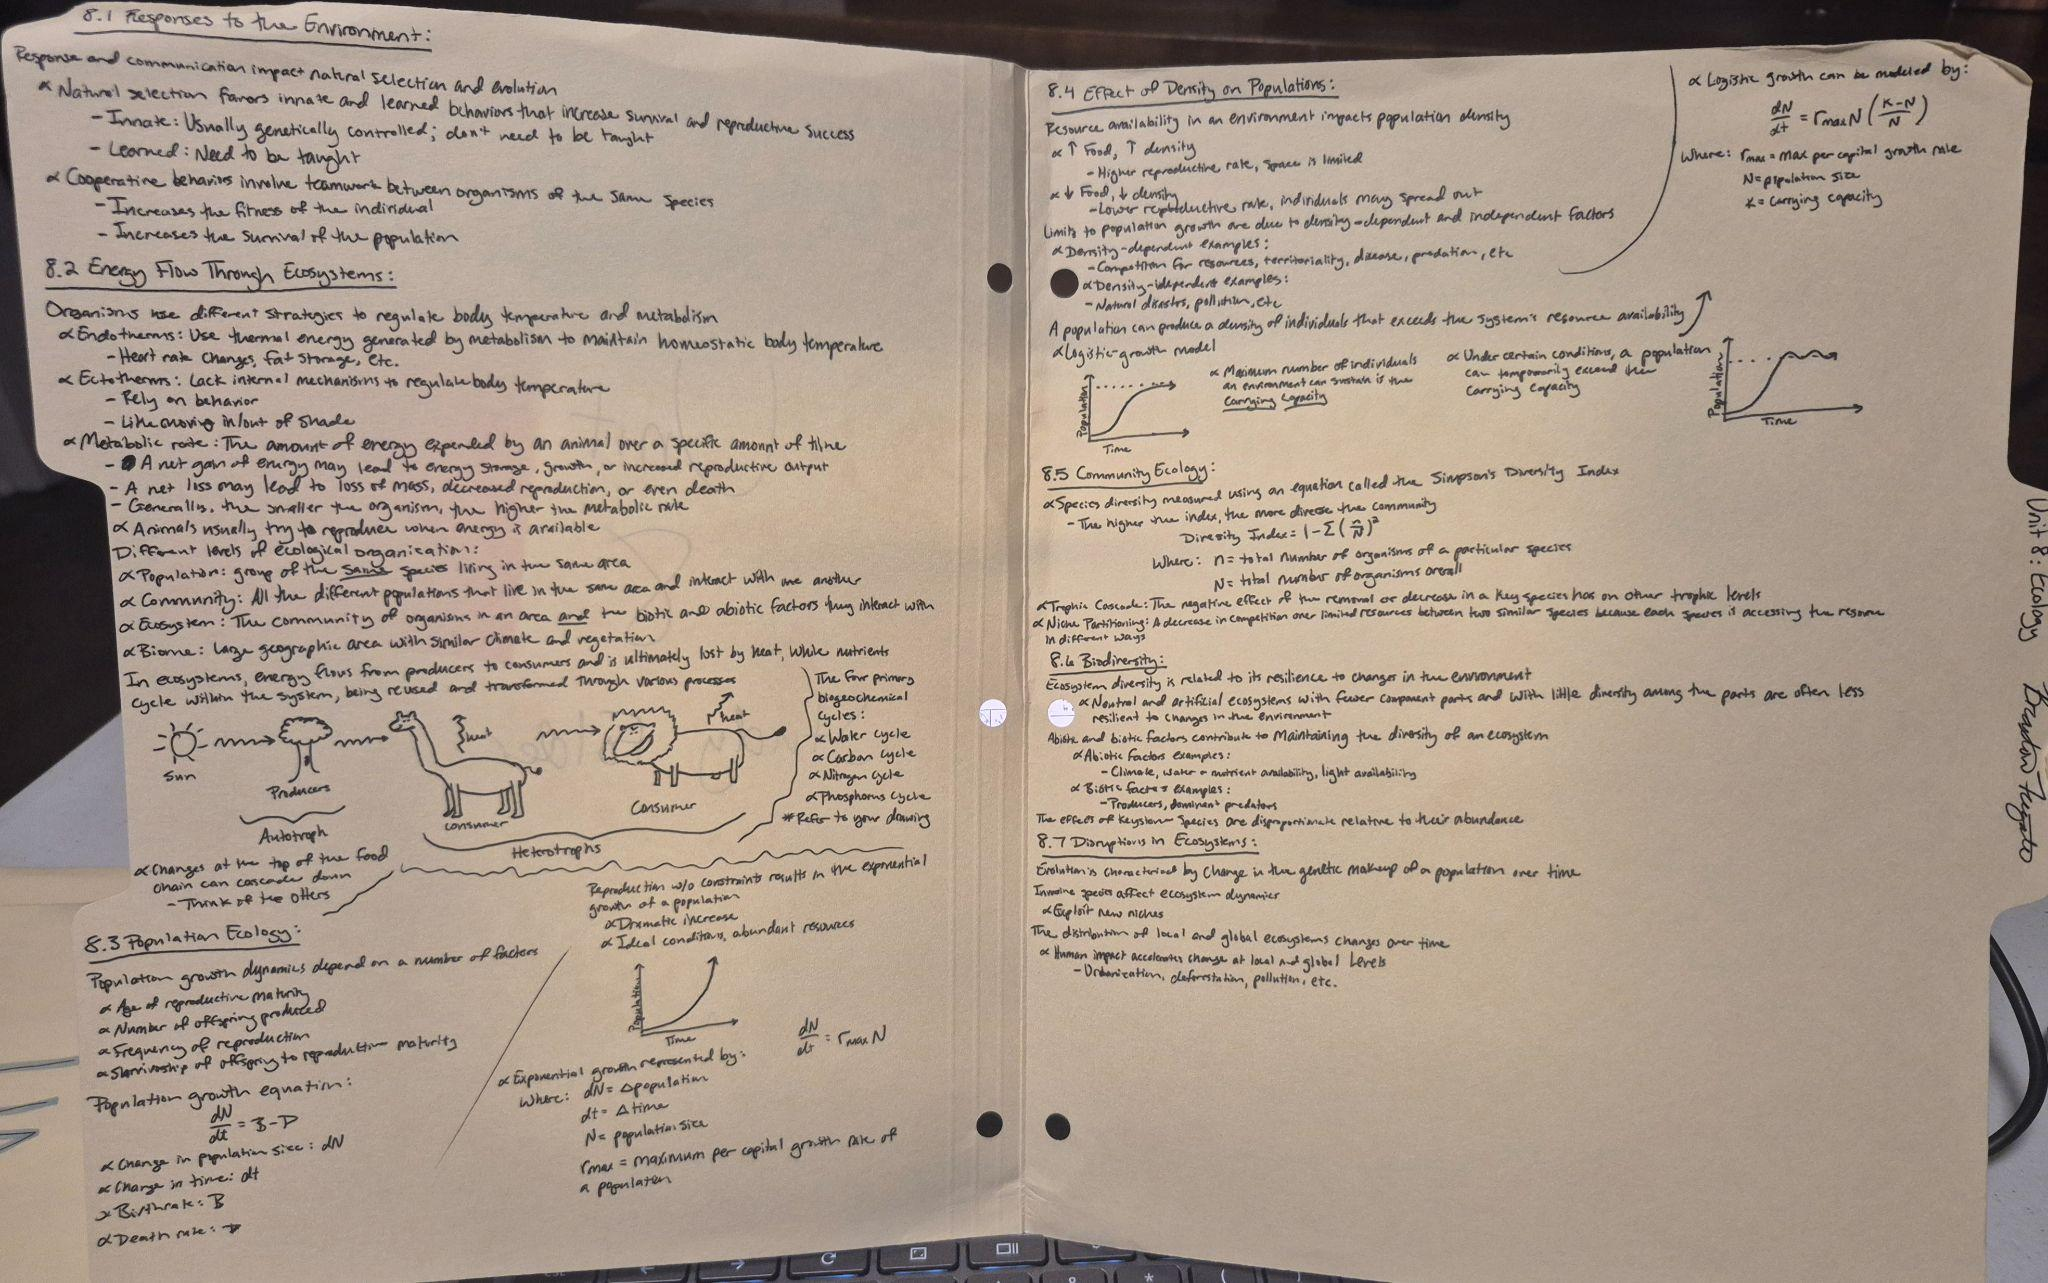 8.1 Responses to the Environment:
Response and communication impact natural selection and evolution
∝ Natural selection favors innate and learned behaviors that increase survival and reproductive success
- Innate: Usually genetically controlled; don't need to be taught
- Learned: Need to be taught
∝ Cooperative behaviors involve teamwork between organisms of the same species
- Increases the fitness of the individual
- Increases the survival of the population
8.2 Energy Flow Through Ecosystems:
Organisms use different strategies to regulate body temperature and metabolism
∝ Endotherms: Use thermal energy generated by metabolism to maintain homeostatic body temperature
- Heart rate changes, fat storage, etc.
∝ Ectotherms: Lack internal mechanisms to regulate body temperature
- Rely on behavior
- Like moving in/out of shade
∝ Metabolic rate: The amount of energy expended by an animal over a specific amount of time
- A net gain of energy may lead to energy storage, growth, or increased reproductive output
- A net loss may lead to loss of mass, decreased reproduction, or even death
- Generally, the smaller the organism, the higher the metabolic rate
∝ Animals usually try to reproduce when energy is available
Different levels of ecological organization:
∝ Population: group of the same species living in the same area
∝ Community: All the different populations that live in the same area and interact with one another
∝ Ecosystem: The community of organisms in an area and the biotic and abiotic factors they interact with
∝ Biome: Large geographic area with similar climate and vegetation
In ecosystems, energy flows from producers to consumers and is ultimately lost by heat, while nutrients
cycle within the system, being reused and transformed through various processes
Sun
Producers
Autotroph
heat
consumer
heat
Consumer
Heterotrophs
The four primary
biogeochemical
cycles:
∝ Water cycle
∝ Carbon cycle
∝ Nitrogen cycle
∝ Phosphorus cycle
* Refer to your drawing
∝ Changes at the top of the food
chain can cascade down
- Think of the otters
8.3 Population Ecology:
Population growth dynamics depend on a number of factors
∝ Age of reproductive maturity
∝ Number of offspring produced
∝ Frequency of reproduction
∝ Survivorship of offspring to reproductive maturity
Population growth equation:
dN/dt = B-D
∝ Change in population size: dN
∝ Change in time: dt
∝ Birthrate: B
∝ Death rate: D
Reproduction w/o constraints results in the exponential
growth of a population
∝ Dramatic increase
∝ Ideal conditions, abundant resources
Population
Time
∝ Exponential growth represented by:
dN/dt = rmax N
Where: dN = Δ population
dt = Δ time
N = population size
rmax = maximum per capital growth rate of
a population
8.4 Effect of Density on Populations:
Resource availability in an environment impacts population density
∝ ↑ Food, ↑ density
- Higher reproductive rate, space is limited
∝ ↓ Food, ↓ density
- Lower reproductive rate, individuals may spread out
Limits to population growth are due to density-dependent and independent factors
∝ Density-dependent examples:
- Competition for resources, territoriality, disease, predation, etc
∝ Density-independent examples:
- Natural disasters, pollution, etc
A population can produce a density of individuals that exceeds the system's resource availability
∝ Logistic-growth model
Population
Time
∝ Maximum number of individuals
an environment can sustain is the
Carrying Capacity
∝ Under certain conditions, a population
can temporarily exceed their
carrying capacity
Population
Time
∝ Logistic growth can be modeled by:
dN/dt = rmax N (K-N/N)
Where: rmax = max per capital growth rate
N = population size
K = carrying capacity
8.5 Community Ecology:
∝ Species diversity measured using an equation called the Simpson's Diversity Index
- The higher the index, the more diverse the community
Diversity Index = 1-Σ(n/N)²
Where: n = total number of organisms of a particular species
N = total number of organisms overall
∝ Trophic Cascade: The negative effect of the removal or decrease in a key species has on other trophic levels
∝ Niche Partitioning: A decrease in competition over limited resources between two similar species because each species is accessing the resource
in different ways
8.6 Biodiversity:
Ecosystem diversity is related to its resilience to changes in the environment
∝ Neutral and artificial ecosystems with fewer component parts and with little diversity among the parts are often less
resilient to changes in the environment
Abiotic and biotic factors contribute to maintaining the diversity of an ecosystem
∝ Abiotic factors examples:
- Climate, water + nutrient availability, light availability
∝ Biotic factors examples:
- Producers, dominant predators
The effects of keystone species are disproportionate relative to their abundance
8.7 Disruptions in Ecosystems:
Evolution is characterized by change in the genetic makeup of a population over time
Invasive species affect ecosystem dynamics
∝ Exploit new niches
The distribution of local and global ecosystems changes over time
∝ Human impact accelerates change at local and global levels
- Urbanization, deforestation, pollution, etc.
Unit 8: Ecology